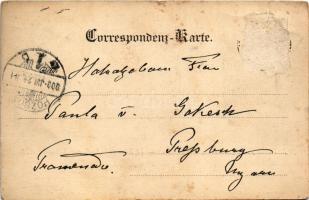 Correspondenz-Karte.
Hochgeboren Frau
Paula v.
Pressburg
Promenade.
Ungarn